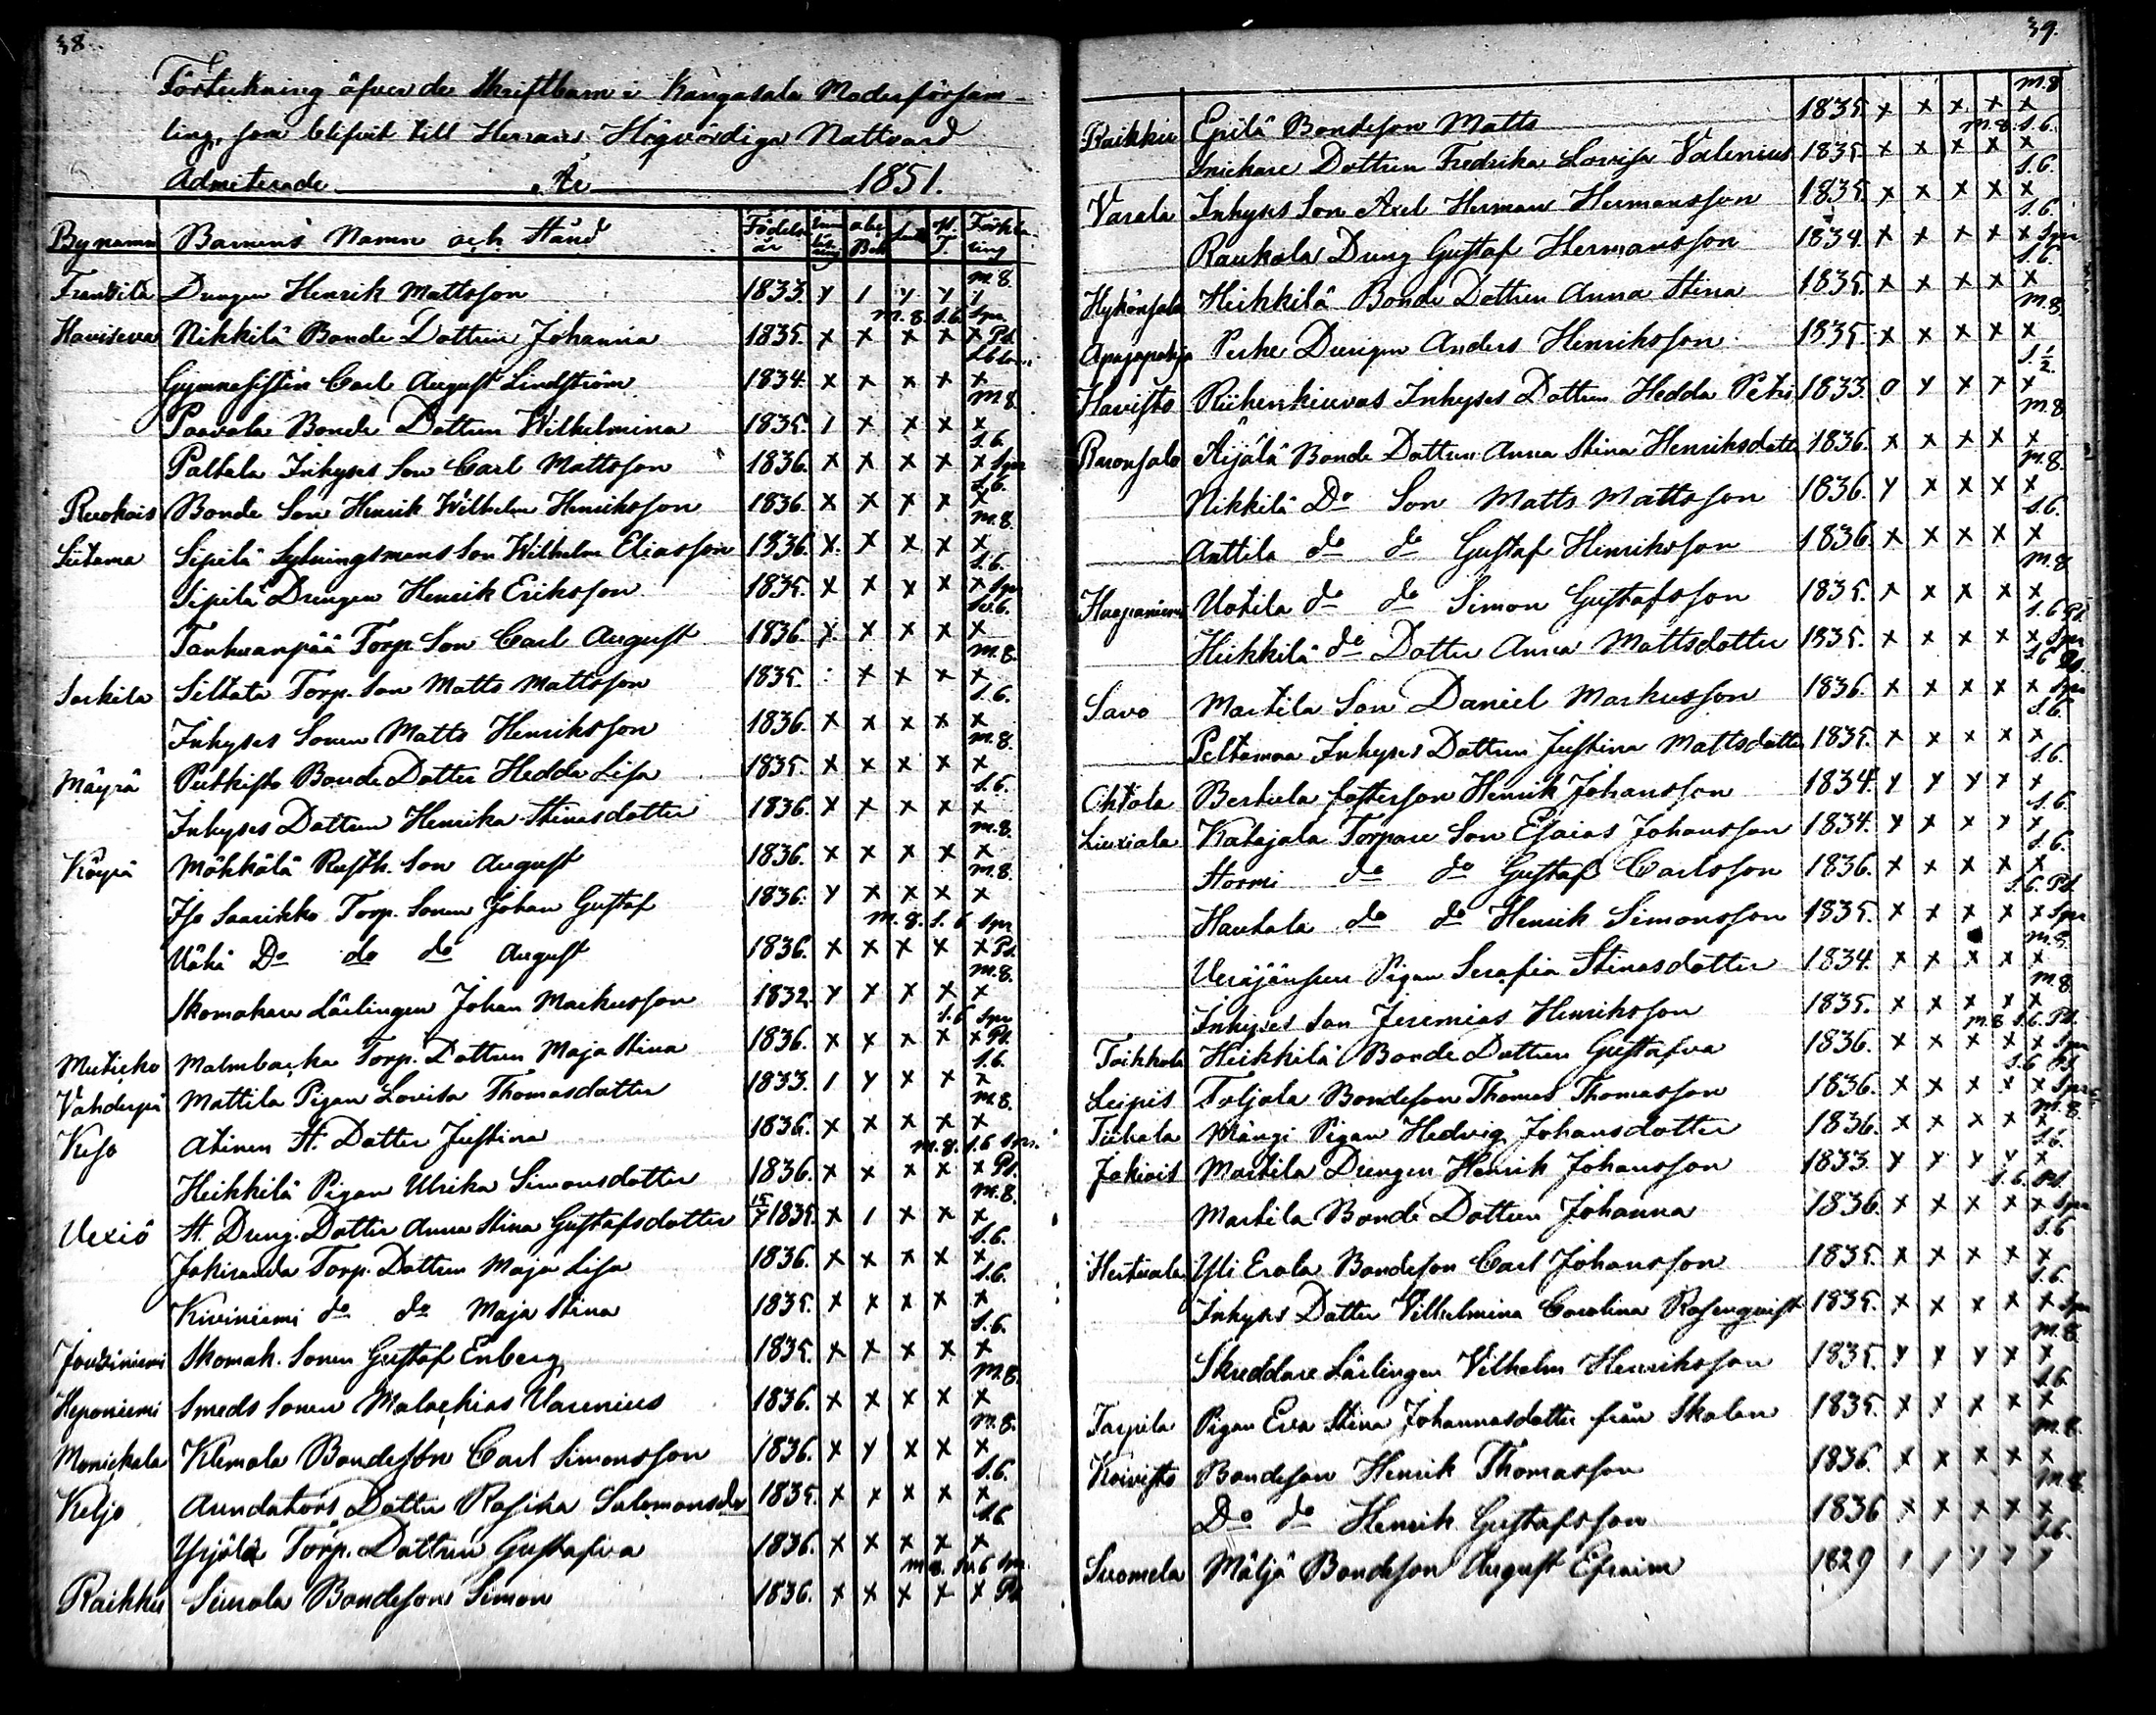 38.
Förteckning öfver de Skriftbarn i Kangasala Moderförsam-
ling, som blifvit till Herrans Högvördiga Nattvard
Admitterade År 1851.
Bynamn Barnens Namn och Stånd Födelse år abc Bok Förkla-ring
m. 8.
Frantsila Drengen Henrik Mattsson 1833. y / y y y
m. 8. S. 6. Spr
Haviseva Nikkilä Bonde Dottren Johanna 1835. x x x x x Ps.
Gymnasisten Carl August Lindström 1834. x x x x x
m 8.
Paavola Bonde Dottren Wilhelmina 1835. / x x x x
S. 6.
Paltala Inhyses Son Carl Mattsson 1836. x x x x x Spr
S. 6.
Ruokois Bonde Son Henrik Wilhelm Henriksson 1836. x x x x x
m. 8.
Siitama Sipilä Sytningsmans Son Wilhelm Eliasson 1836. x x x x x
S. 6.
Sipilä Drengen Henrik Eriksson 1835. x x x x x Spr
Sv. 6.
Tanhuanpää Torp. Son Carl August 1836. x x x x x
m. 8.
Sorkila Siltata Torp. Son Matts Mattsson 1835. x x x x
S. 6.
Inhyses Sonen Matts Henriksson 1836. x x x x x
m. 8.
Mäyrä Putkisto Bonde Dotter Hedda Lisa 1835. x x x x x
S. 6.
Inhyses Dottren Henrika Stinasdotter 1836. x x x x x
m. 8.
Köyrä Möhkölä Rusth. Son August 1836. x x x x x
m. 8.
Iso Saarikko Torp. Sonen Johan Gustaf 1836. y x x x x
m. 8. S. 6 Spr
Vähä Do do do August 1836. x x x x x Ps.
m. 8.
Skomakare Lärlingen Johan Markusson 1832. y y x x x
S. 6 Spr
Mutikko Malmbacka Torp. Dottren Maja Stina 1836. x x x x x Ps.
S. 6.
Vahderpä Mattila Pigan Lovisa Thomasdotter 1833. / y x x x
m. 8.
Keso Atinen St. Dotter Justina 1836. x x x x x
m. 8. S. 6 Spr.
Heikkilä Pigan Ulrika Simonsdotter 1836. x x x x x Ps.
m. 8.
Vexiö St. Dreng. Dotter Anna Stina Gustafsdotter 15/7 1835. x / x x x
S. 6.
Jokiranda Torp. Dottren Maja Lisa 1836. x x x x x
S. 6.
Kiviniemi do do Maja Stina 1835. x x x x x
S. 6.
Joutziniemi Skomak. Sonen Gustaf Enberg 1835. x x x x x
m. 8.
Heponiemi Smeds Sonen Malachias Varenius 1836. x x x x x
m. 8.
Monickala Klemola Bondeson Carl Simonsson 1836. x y x x x
S. 6.
Keljo Arrendators Dotter Rosina Salomonsdr 1835. x x x x x
S. 6.
Yrjölä Torp. Dottren Gustafva 1836. x x x x x
m 8. Sv. 6 Spr.
Raikku Simola Bondeson Simon 1836. x x x x x Ps
39.
m. 8
Raikku Erilä Bondeson Matts 1835. x x x x x
m. 8. S. 6.
Snickare Dottren Fredrika Lovisa Valenius 1835. x x x x x
S. 6.
Varala Inhyses Son Axel Herman Hermansson 1835. x x x x x
S. 6.
Raukola Dreng Gustaf Hermansson 1834. x x x x x Spr
S. 6.
Hykönsala Heikkilä Bonde Dottren Anna Stina 1835. x x x x x
m. 8.
Apajapohja Perhe Drengen Anders Henriksson 1835. x x x x x
S. 1/2.
Havisto Riihenkiuvas Inhyses Dottren Hedda Petri 1833. o y x x x
m. 8
Ruonsalo Äijälä Bonde Dottren Anna Stina Henriksdotter 1836. x x x x x
m. 8.
Nikkilä Do Son Matts Mattsson 1836. y x x x x
S. 6.
Anttila do do Gustaf Henriksson 1836. x x x x x
m. 8
Haapaniemi Uotila do do Simon Gustafsson 1835. x x x x x
S. 6 Ps.
Heikkilä do Dotter Anna Mattsdotter 1835. x x x x x Spr
S. 6 Ps.
Savo Martila Son Daniel Markusson 1836. x x x x x Spr
S. 6.
Peltomaa Inhyses Dottren Justina Mattsdotter 1835. x x x x x
S. 6.
Ohtola Bertula fosterson Henrik Johansson 1834. y y y x x
S. 6.
Liuxiala Katajala Torpare Son Esaias Johansson 1834. x x x x x
S. 6.
Stormi do do Gustaf Carlsson 1836. x x x x x
S. 6. Ps.
Hautala do do Henrik Simonsson 1835. x x x x x Spr
m. 8.
Veräjänsuu Pigan Serafia Stinasdotter 1834. x x x x x
m. 8
Inhyses Son Jeremias Henriksson 1835. x x x x x
m 8 S. 6. Ps.
Toikkola Heikkilä Bonde Dottren Gustafva 1836. x x x x x Spr
S. 6 Ps
Leipis Toljala Bondeson Thomas Thomasson 1836. x x x x x Spr
m. 8.
Tiihala Mängi Pigan Hedvig Johansdotter 1836. x x x x x
S. 6.
Jokiois Martila Drengen Henrik Johansson 1833. y y y y x
S. 6. Ps.
Martila Bonde Dottren Johanna 1836. x x x x x Spr
S. 6
Hertuala Yli Erola Bondeson Carl Johansson 1835. x x x x x
S. 6.
Inhyses Dotter Vilhelmina Carolina Rosenqvist 1835. x x x x x Spr
m. 8.
Skreddare Lärlingen Vilhelm Henriksson 1835. y y y x x
S. 6.
Tarpila Pigan Eva Stina Johannasdotter från Skalan 1835. x x x x x
m. 8.
Koivisto Bondeson Henrik Thomasson 1836. x x x x x
m. 8.
Do do Henrik Gustafsson 1836 x x x x x
S. 6.
Suomela Mäljä Bondeson August Efraim 1829 / / / / /